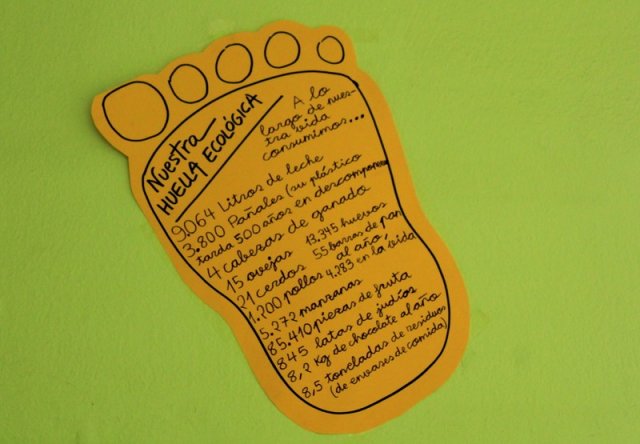 Nuestra
HUELLA ECOLÓGICA
A lo
largo de nues-
tra vida
consumimos...
9.064 Litros de leche
3.800 Pañales (su plástico
tarda 500 años en descomponerse
4 cabezas de ganado
15 ovejas 13.345 huevos
21 cerdos 55 barras de pan
al año,
1.200 pollos 4.283 en la vida
5.272 manzanas
85.410 piezas de fruta
845 latas de judías
8,2 Kg de chocolate al año
8,5 toneladas de residuos
(de envases de comida)